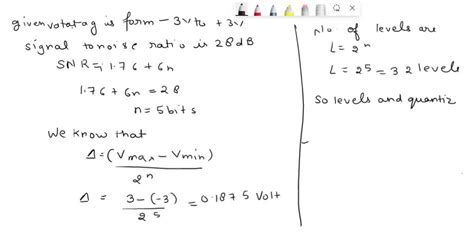 given votatag is form - 3V to + 3V
signal to noise ratio is 28dB
SNR = 1.76 + 6n
1.76 + 6n = 28
n = 5 bits
We know that
Δ = (Vmax - Vmin)
2^n
Δ = 3 - (-3) = 0.1875 Volt
2^5
No. of levels are
L = 2^n
L = 2^5 = 32 levels
So levels and quantiz